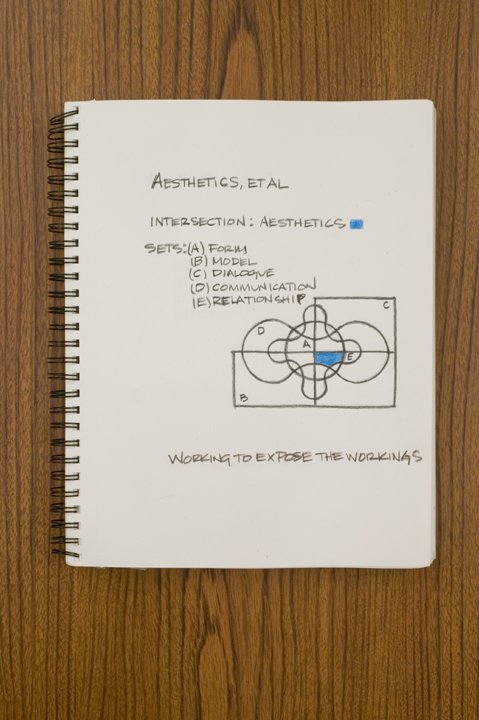 AESTHETICS, ET AL
INTERSECTION: AESTHETICS
SETS: (A) FORM
(B) MODEL
(C) DIALOGUE
(D) COMMUNICATION
(E) RELATIONSHIP
C
D
A
E
B
WORKING TO EXPOSE THE WORKINGS